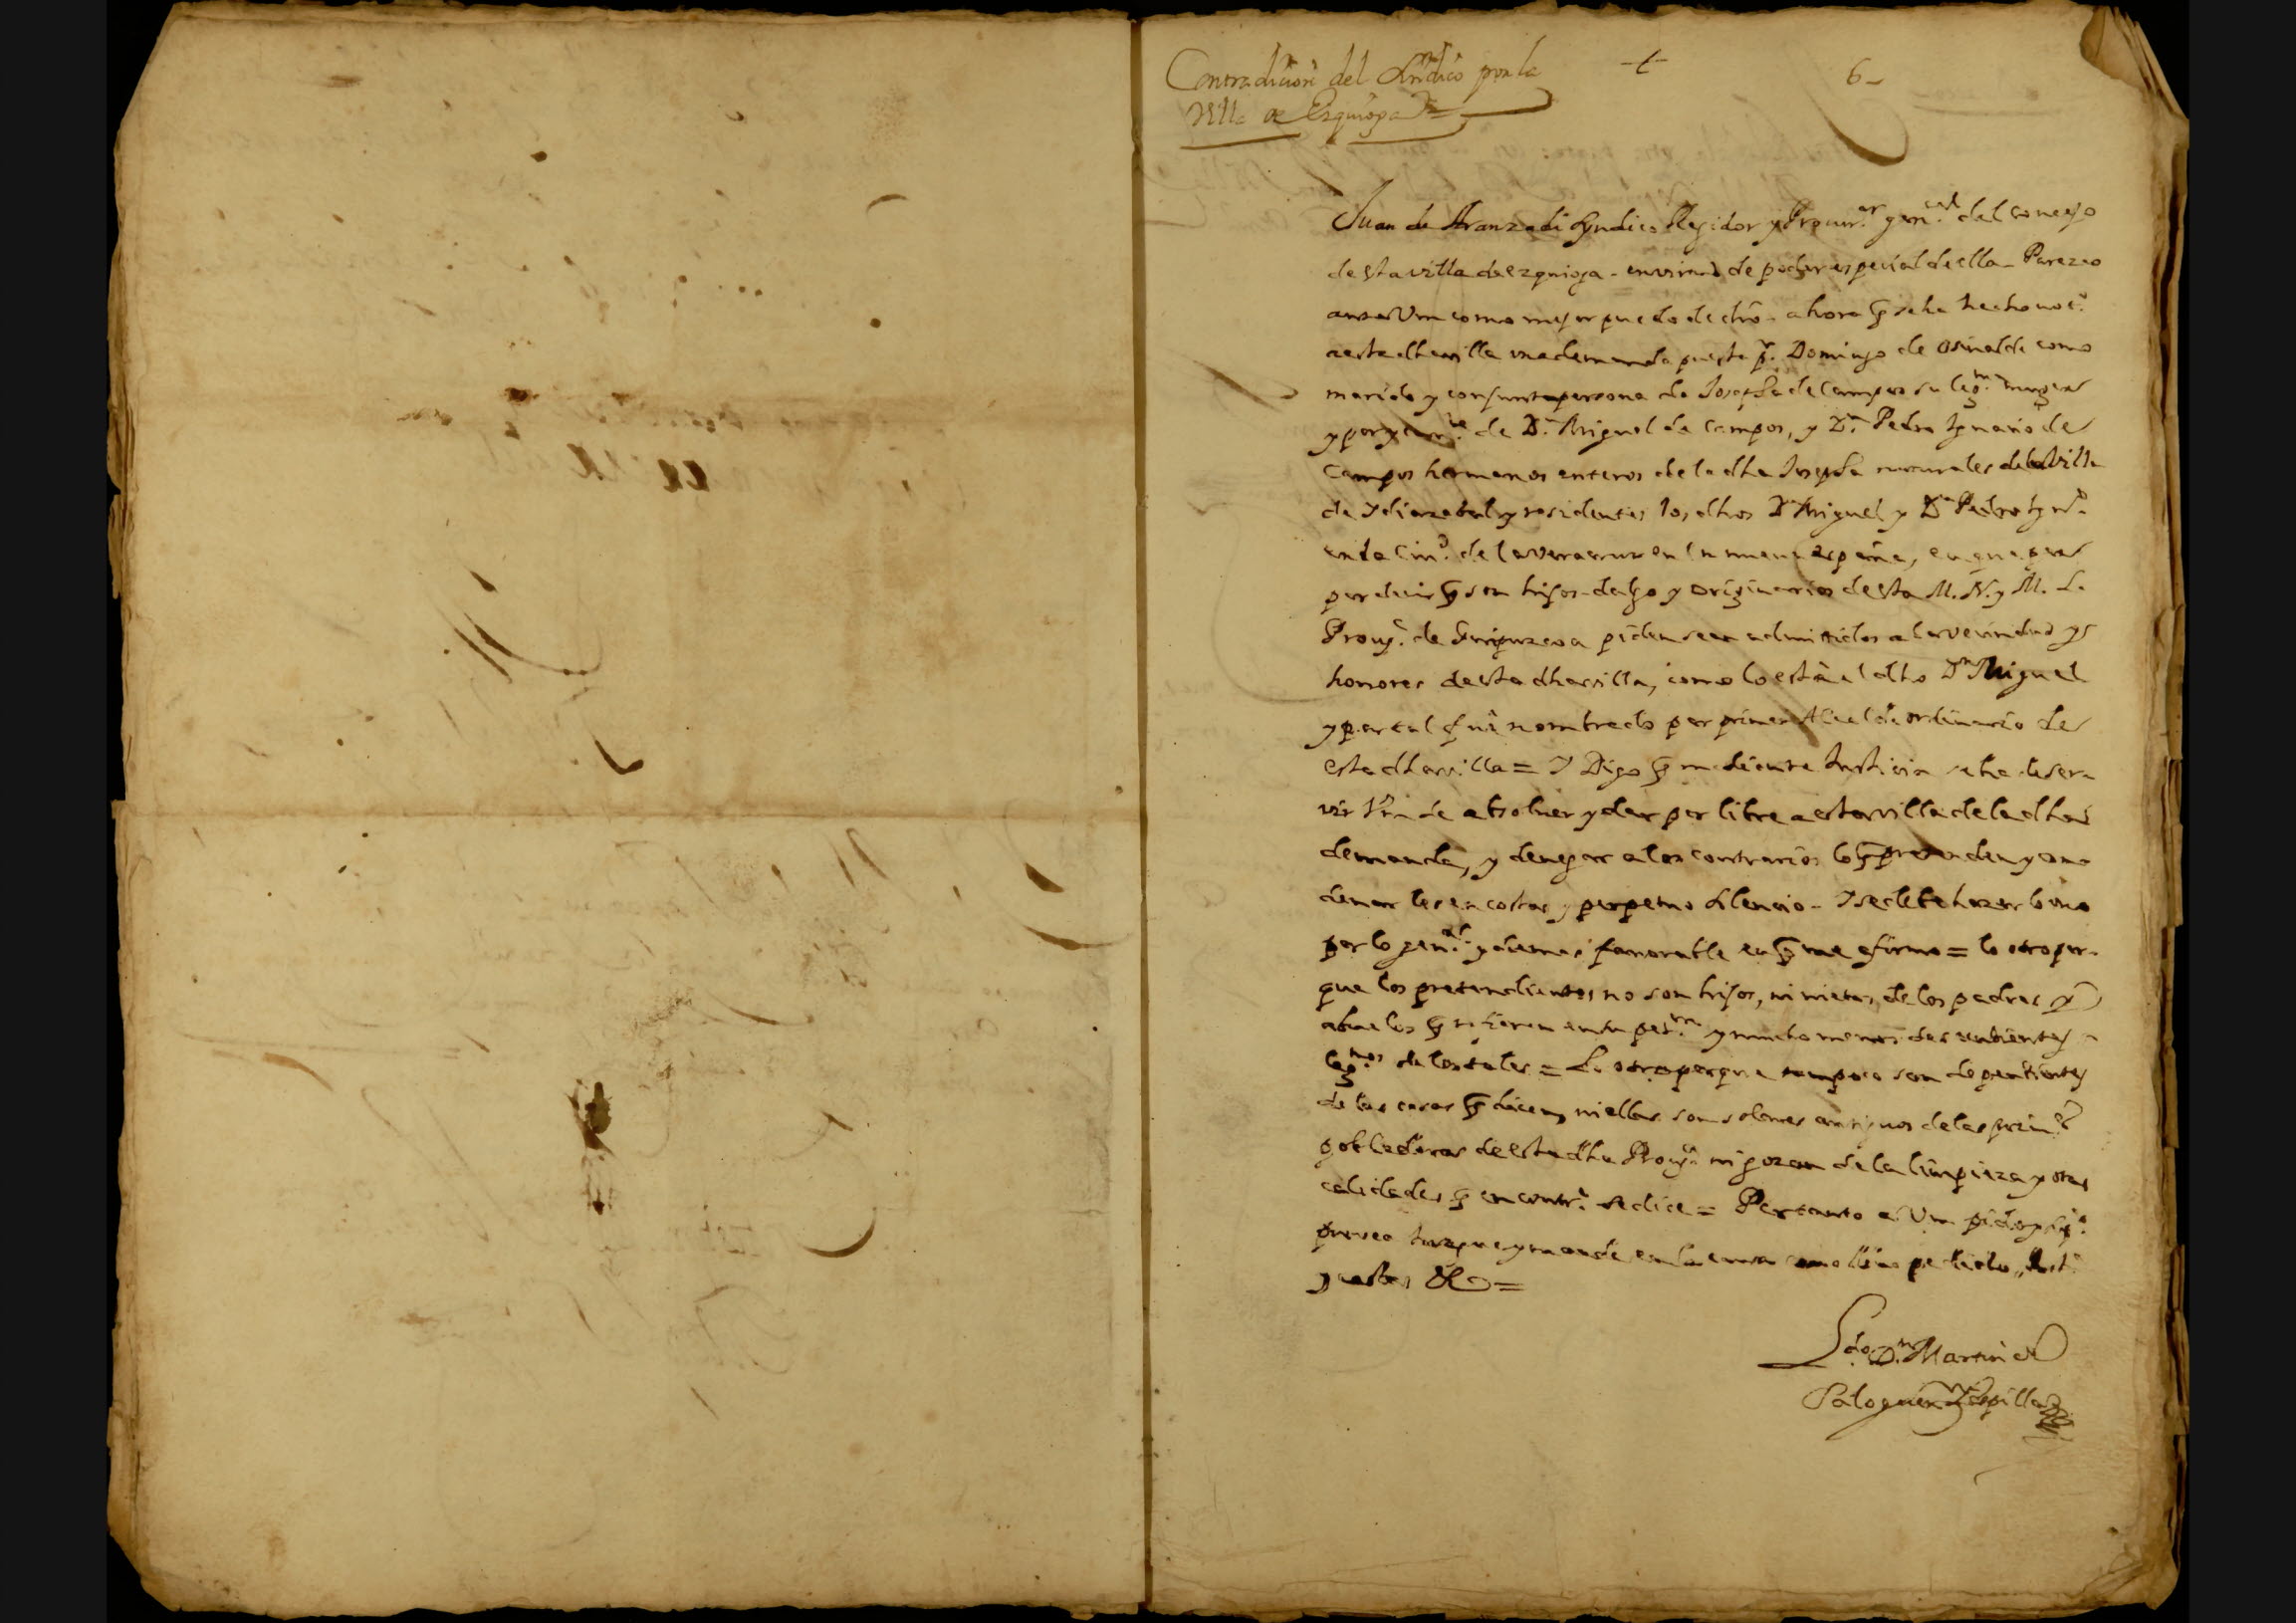 Contradicion del sindico por la
Villa de Ezquioga =
6-
Juan de Aranzadi syndico Regidor y Procur.or gen.ral del concejo
desta villa de ezquioga - en virtud de poder especial de ella - Parezco
ante Vm como mejor puedo de dro - ahora q se ha hecho not.a
a esta dha villa una demanda puesta p.r Domingo de osinalde como
marido y conjunta persona de Josepha de Campos su leg.ma muger
y por y en n.re de D.n Miguel de Campos, y D.n Pedro Ignacio de
Campos hermanos enteros de la dha Josepha naturales de la Villa
de Ydiazabal y residentes los dhos D.n Miguel y D.n Pedro Ign.o
en la Ciu.d de la Veracruz en la nueva españa, en que por
por decir q son hijos-dalgo y originarios desta M. N. y M. L.
Prov.a de Guipuzcoa piden sean admitidos a la vecindad y
honores desta dha villa, como lo está el dho D.n Miguel
y por tal fué nombrado por primer Alcalde ordinario de
esta dha villa = Y Digo q mediante Justicia se ha de ser-
vir Vm de absolver y dar por libre a esta villa de la dha
demanda, y denegar a los contrarios lo q pretenden y con-
denarles en costas y perpetuo silencio - Y se debe hazer lo uno
por lo gen.al y demas favorable en q me afirmo = lo otro por-
que los pretendientes no son hijos, ni nietos, de los padres y
abuelos q refieren en su pet.on y mucho menos descendientes
leg.mos de los tales = Lo otro porque tampoco son dependientes
de las casas q dicen, ni ellas son solares antiguos de las prim.s
pobladoras de esta dha Prov.a ni gozan de la limpieza y otras
calidades q en contr.o se dice = Por tanto a Vm pido y sup.co
provea juzgue y mande en la causa como llevo pedido, Just.a
y costas &c =
Ldo. D.n Martin de
Paloguen y Zepilla